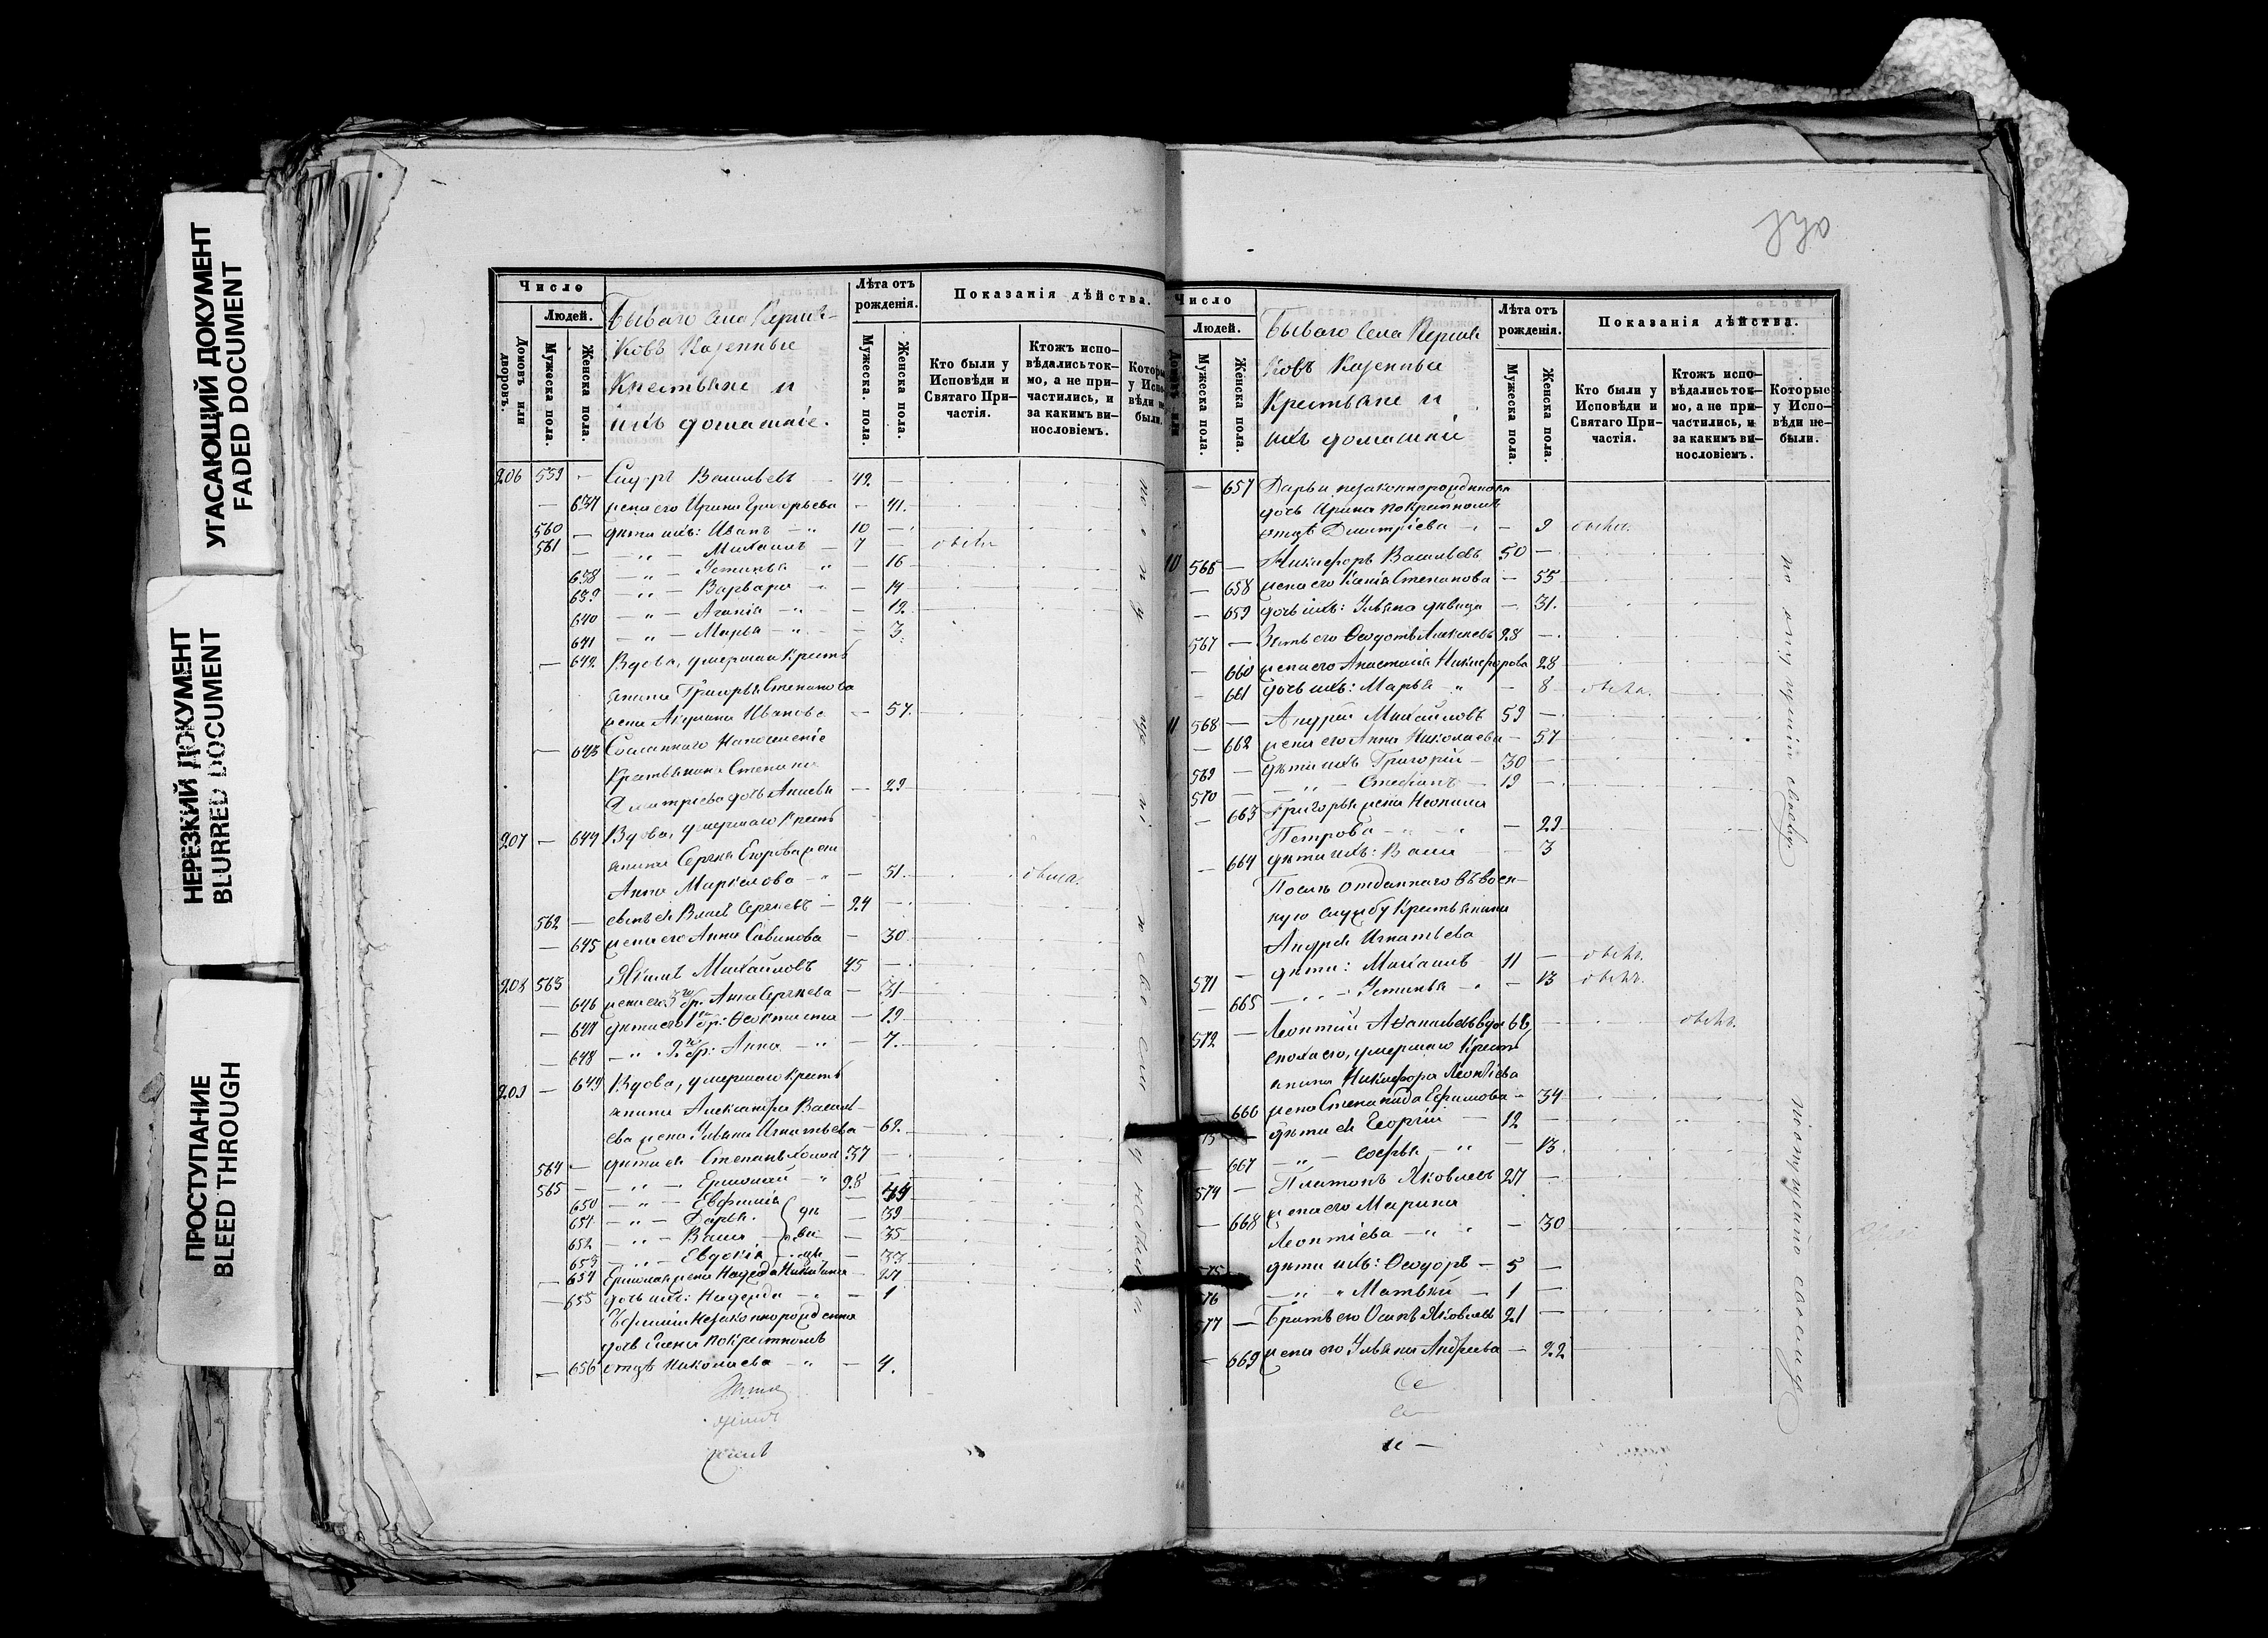 УГАСАЮЩИЙ ДОКУМЕНТ
FADED DOCUMENT
НЕРЕЗКИЙ ДОКУМЕНТ
BLURRED DOCUMENT
ПРОСТУПАНИЕ
BLEED THROUGH
Число
Людей.
Домовъ или дворовъ.
Мужеска пола.
Женска пола.
Бываго Села
ковъ Казенные
Крестьяне и
ихъ домашніе.
Лѣта отъ рожденія.
Мужеска. пола.
Женска пола.
Показанія дѣйства.
Кто были у Исповѣди и Святаго Причастія.
Ктожъ исповѣдались токмо, а не причастились, и за какимъ винословіемъ.
206 559 — Сидоръ Васильевъ 42 —
— 637 жена его Ирина Григорьева — 41.
560 — дѣти ихъ: Иванъ — " 10 —
561 — — " — Михаилъ — 7 —
638 — " — Устинья " — 16
639 — " — Варвара — 14
640 — " — Агапія — " — 12
641 — " — Марья — " — 3.
— 642 Вдова, умершаго Кресть
янина Григорья Степанова
жена Акулина Иванова — 57.
— 643 Сосланнаго На поселеніе
Крестьянина Степана
Дмитріева дочь — 29
207 — 644 Вдова, умершаго Кресть
янина Сергѣя Егорова жена
Анна Маркелова — " — 51.
562 — сынъ ея Власъ Сергѣевъ — 24 —
— 645 жена его Анна Савинова — 30
208 563 Якимъ Михайловъ 45 —
— 646 жена его 3го бр. Анна Сергѣева — 31
— 647 дѣти его 1го бр: Ѳеоктиста — 19
— 648 — " 2го бр: Анна — " — 7.
209 — 649 Вдова, умершаго Кресть
янина Александра Василь-
ева жена Ульяна Игнатьева — 62.
564 — дѣти ея Степанъ холост 37 —
565 — — " — Ермолай — " 28
650 — " — Евфимія —
651 — " — Дарья. — 39
652 — " — Васса — 35
653 — " — Евдокія — 33
— 654 Ермолая жена Надежда Никитина — 27
— 655 дочь ихъ: Надежда — " — 1
Евфиміи Незаконнорожденная
дочь Елена по крестномъ
— 656 отцѣ Николаева — " — 4.
Число
Людей.
Мужеска пола.
Женска пола.
Бываго Села
ковъ Казенные
Крестьяне и
ихъ домашніе
Лѣта отъ рожденія.
Мужеска пола.
Женска пола.
Показанія дѣйства.
Кто были у Исповѣди и Святаго Причастія.
Ктожъ исповѣдались токмо, а не причастились, и за какимъ винословіемъ.
Которые у Исповѣди не были.
— 657 Дарьи незаконнорожденная
дочь Ирина по крестномъ
отцѣ Дмитріева — 9
10 566 — Никифоръ Васильевъ 50 —
— 658 жена его Ксенія Степанова — 55
— 659 дочь ихъ: Ульяна дѣвица — 31.
567 — Зять его Ѳеодотъ Алексѣевъ 28 —
— 660 жена его Анастасія Никифорова 28
— 661 дочь ихъ: Марья " — 8
11 568 — Андрей Михайловъ 59 —
— 662 жена его Анна Николаева — 57
569 — дѣти ихъ Григорій — 30 —
570 — — " — Стефанъ — 19 —
— 663 Григорья жена Неонила
Петрова — " — 29
— 664 дѣти ихъ: Васса — 3
Послѣ отданнаго въ воен-
ную службу Крестьянина
Андрея Игнатьева
571 — дѣти: Михаилъ 11 —
— 665 — " — Устинья — 13
572 — Леонтій
сноха его, умершаго Кресть
янина Никифора Леонтіева
— 666 жена Степанида Ефимова — 34
дѣти ея Георгій — 12 —
— 667 — " — Софья — " — 13.
574 — Платонъ Яковлевъ 27 —
— 668 жена его Марина
Леонтіева — " — 30
575 дѣти ихъ: Ѳеодоръ — 5 —
576 — " — Матвѣй — 1 —
577 — Братъ его Осипъ Яковлевъ 21 —
— 669 жена его Ульяна Андреева — 22